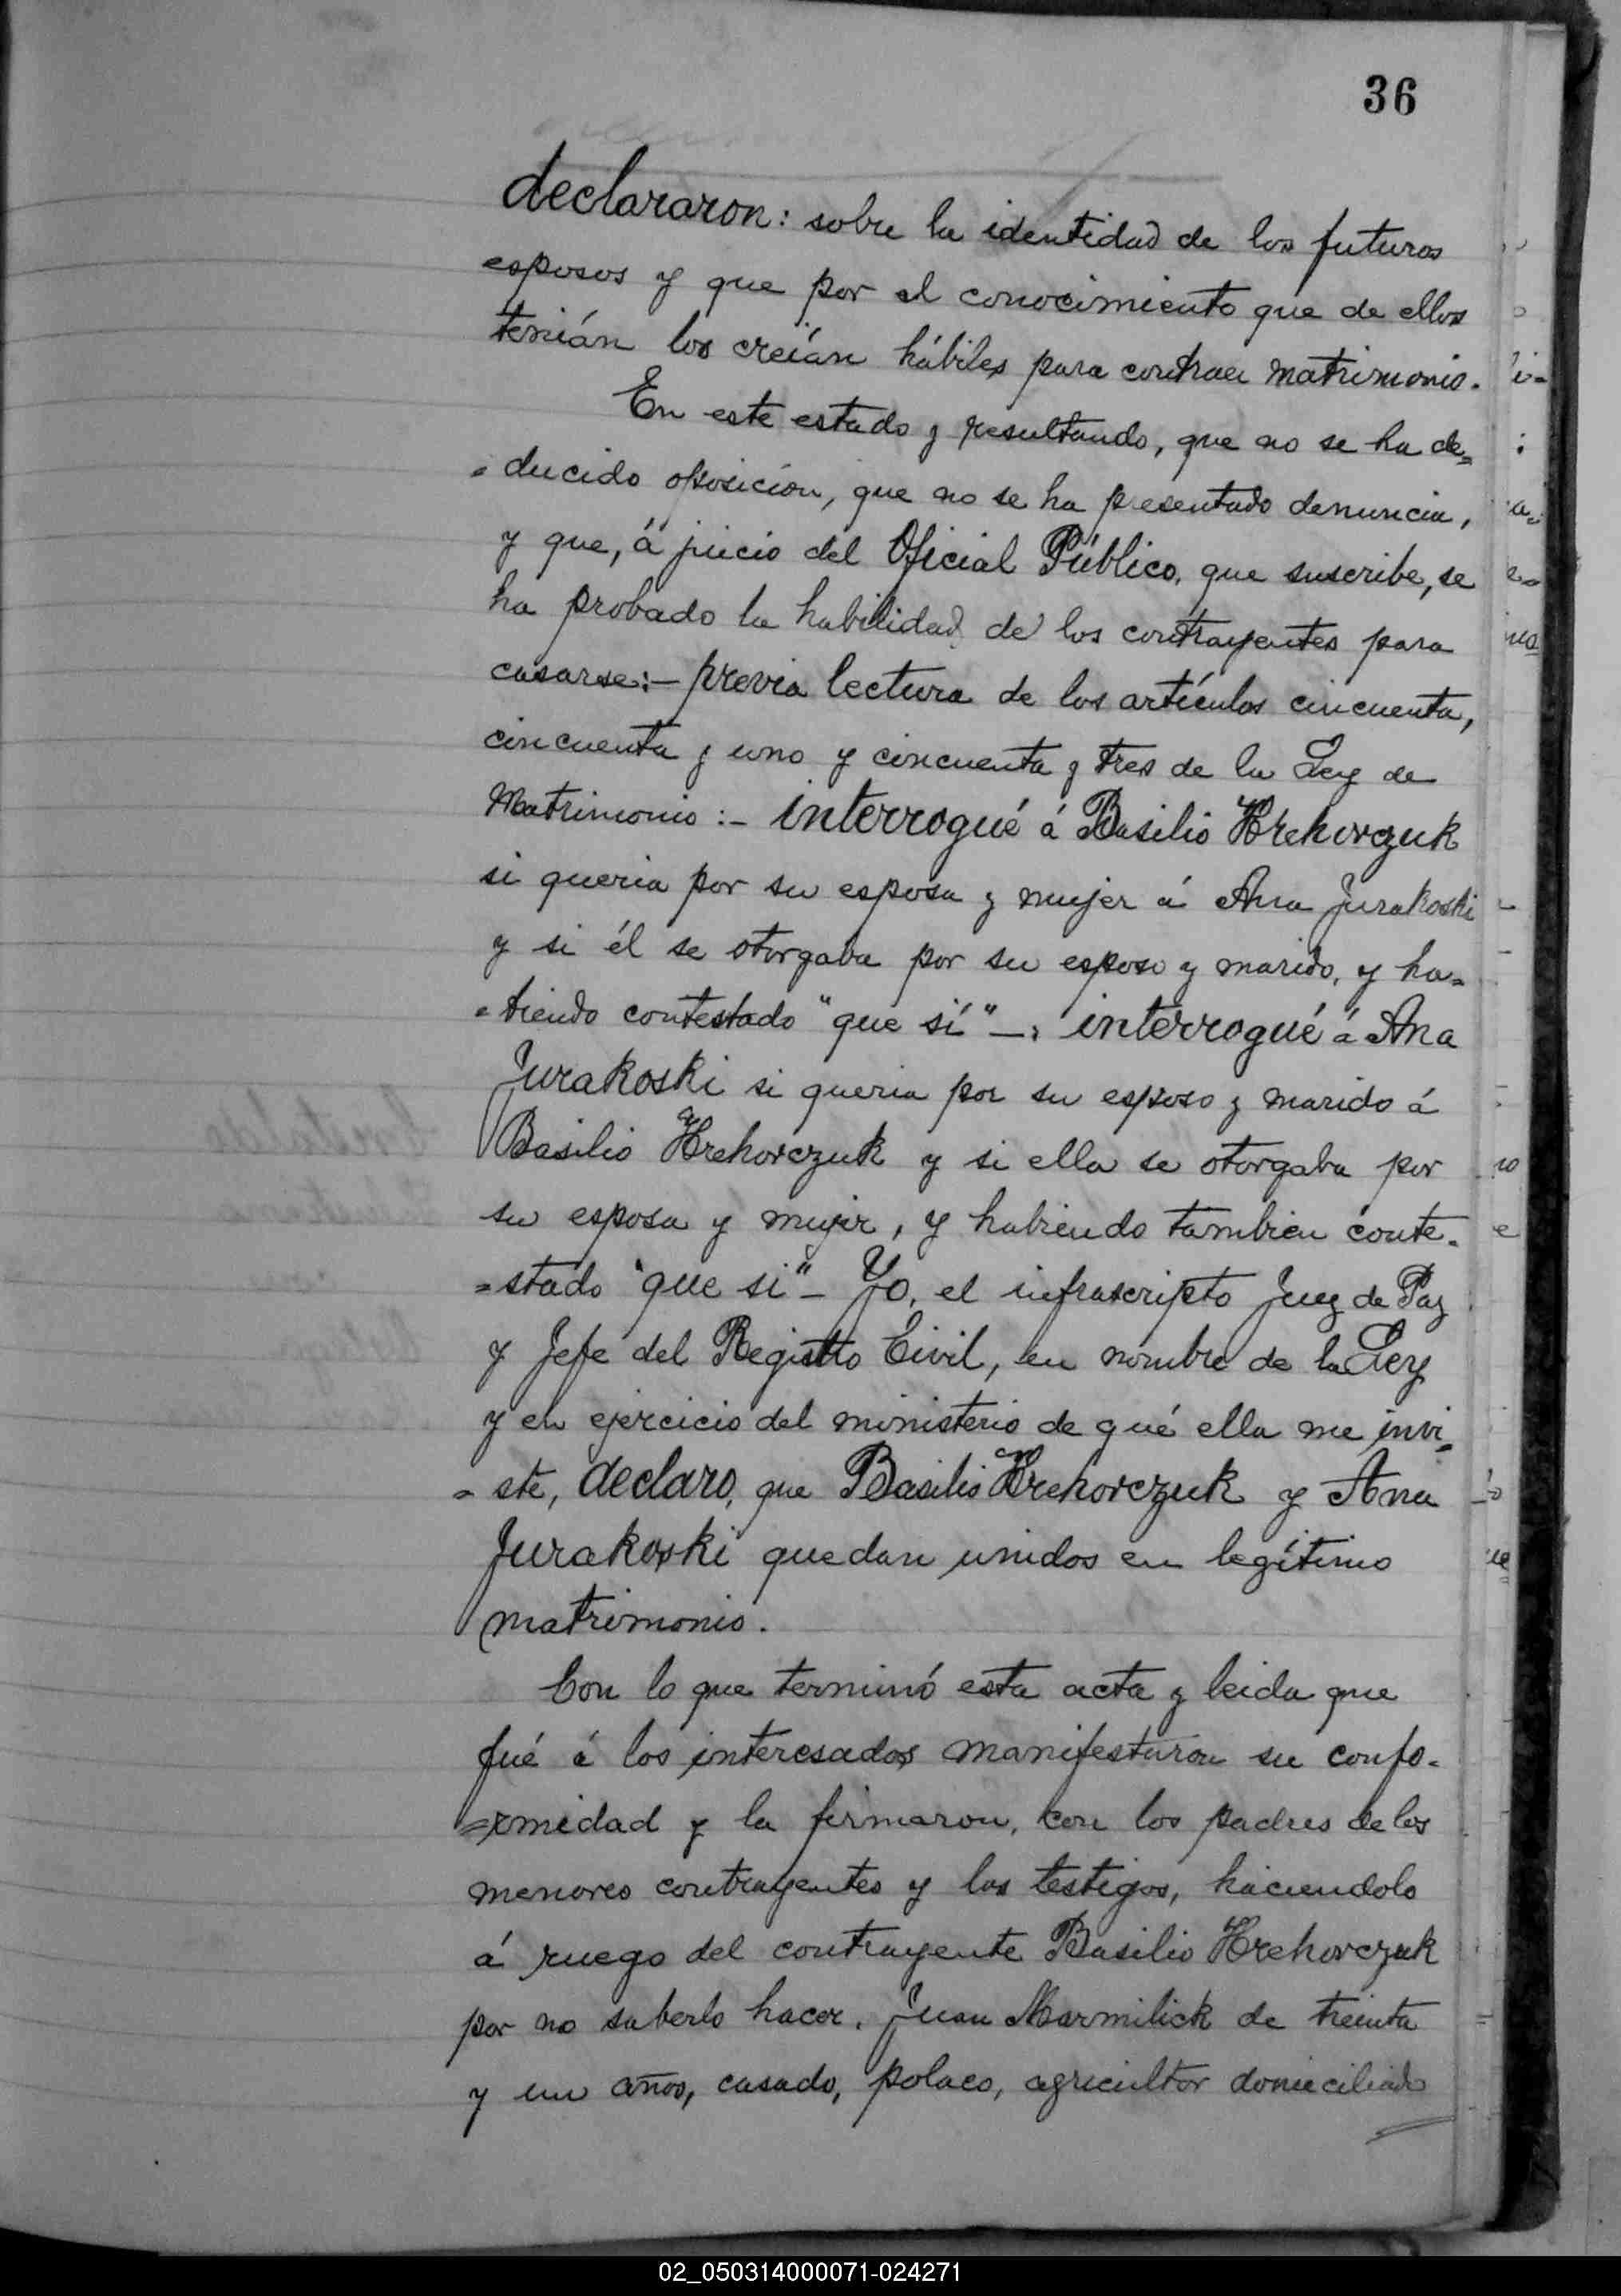 36
declararon: sobre la identidad de los futuros
esposos y que por el conocimiento que de ellos
tenián los creían hábiles para contraer matrimonio.
En este estado y resultando, que no se ha de=
=ducido oposición, que no se ha presentado denuncia,
y que, á juicio del Oficial Público, que suscribe, se
ha probado la habilidad de los contrayentes para
casarse:- previa lectura de los artículos cincuenta,
cincuenta y uno y cincuenta y tres de la Ley de
Matrimonio:- interrogué á Basilio Hrehorczuk
si queria por su esposa y mujer á Ana Jurakoski
y si él se otorgaba por su esposo y marido, y ha=
=biendo contestado "que sí"-, interrogué á Ana
Jurakoski si queria por su esposo y marido á
Basilio Hrehorczuk y si ella se otorgaba por
su esposa y mujer, y habiendo tambien conte-
=stado "que si"- Yo, el infrascripto Juez de Paz
y Jefe del Registro Civil, en nombre de la Ley
y en ejercicio del ministerio de qué ella me invi=
=ste, declaro, que Basilio Hrehorczuk y Ana
Jurakoski quedan unidos en legítimo
matrimonio.
Con lo que terminó esta acta y leida que
fué á los interesados manifestaron su confo-
=rmidad y la firmaron, con los padres de los
menores contrayentes y los testigos, haciendolo
á ruego del contrayente Basilio Hrehorczuk
por no saberlo hacer, Juan Marmilick de treinta
y un años, casado, polaco, agricultor domiciliado
02_050314000071-024271